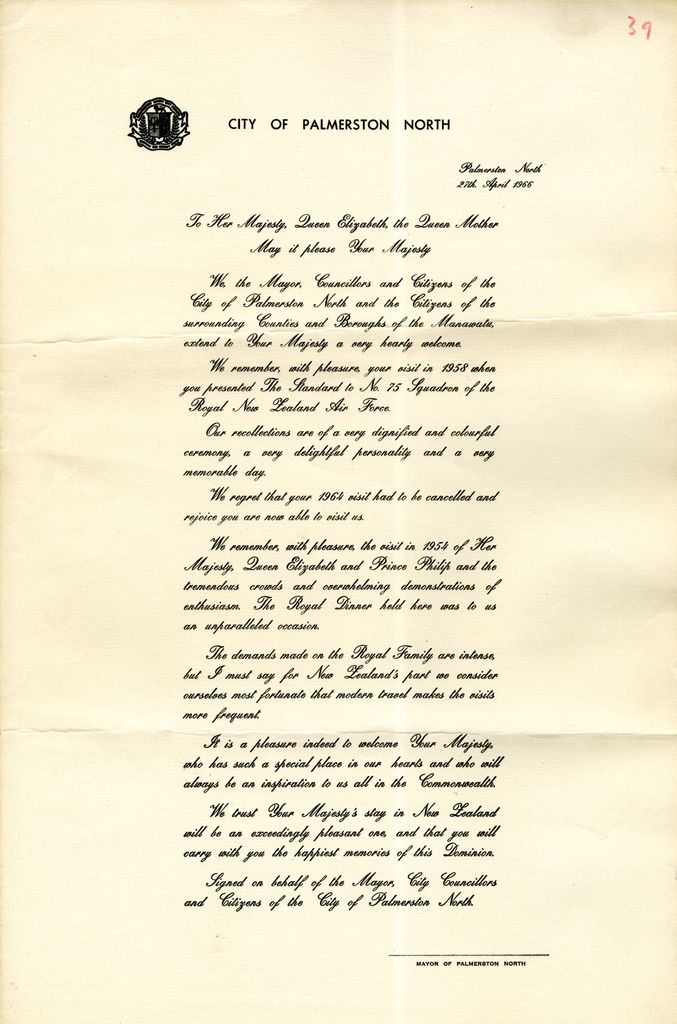 39
CITY OF PALMERSTON NORTH
Palmerston North
27th. April 1966
To Her Majesty, Queen Elizabeth, the Queen Mother
May it please Your Majesty
We, the Mayor, Councillors and Citizens of the
City of Palmerston North and the Citizens of the
surrounding Counties and Boroughs of the Manawatu,
extend to Your Majesty a very hearty welcome.
We remember, with pleasure, your visit in 1958 when
you presented The Standard to No. 75 Squadron of the
Royal New Zealand Air Force.
Our recollections are of a very dignified and colourful
ceremony, a very delightful personality and a very
memorable day.
We regret that your 1964 visit had to be cancelled and
rejoice you are now able to visit us.
We remember, with pleasure, the visit in 1954 of Her
Majesty, Queen Elizabeth and Prince Philip and the
tremendous crowds and overwhelming demonstrations of
enthusiasm. The Royal Dinner held here was to us
an unparalleled occasion.
The demands made on the Royal Family are intense,
but I must say for New Zealand's part we consider
ourselves most fortunate that modern travel makes the visits
more frequent.
It is a pleasure indeed to welcome Your Majesty,
who has such a special place in our hearts and who will
always be an inspiration to us all in the Commonwealth.
We trust Your Majesty's stay in New Zealand
will be an exceedingly pleasant one, and that you will
carry with you the happiest memories of this Dominion.
Signed on behalf of the Mayor, City Councillors
and Citizens of the City of Palmerston North.
MAYOR OF PALMERSTON NORTH